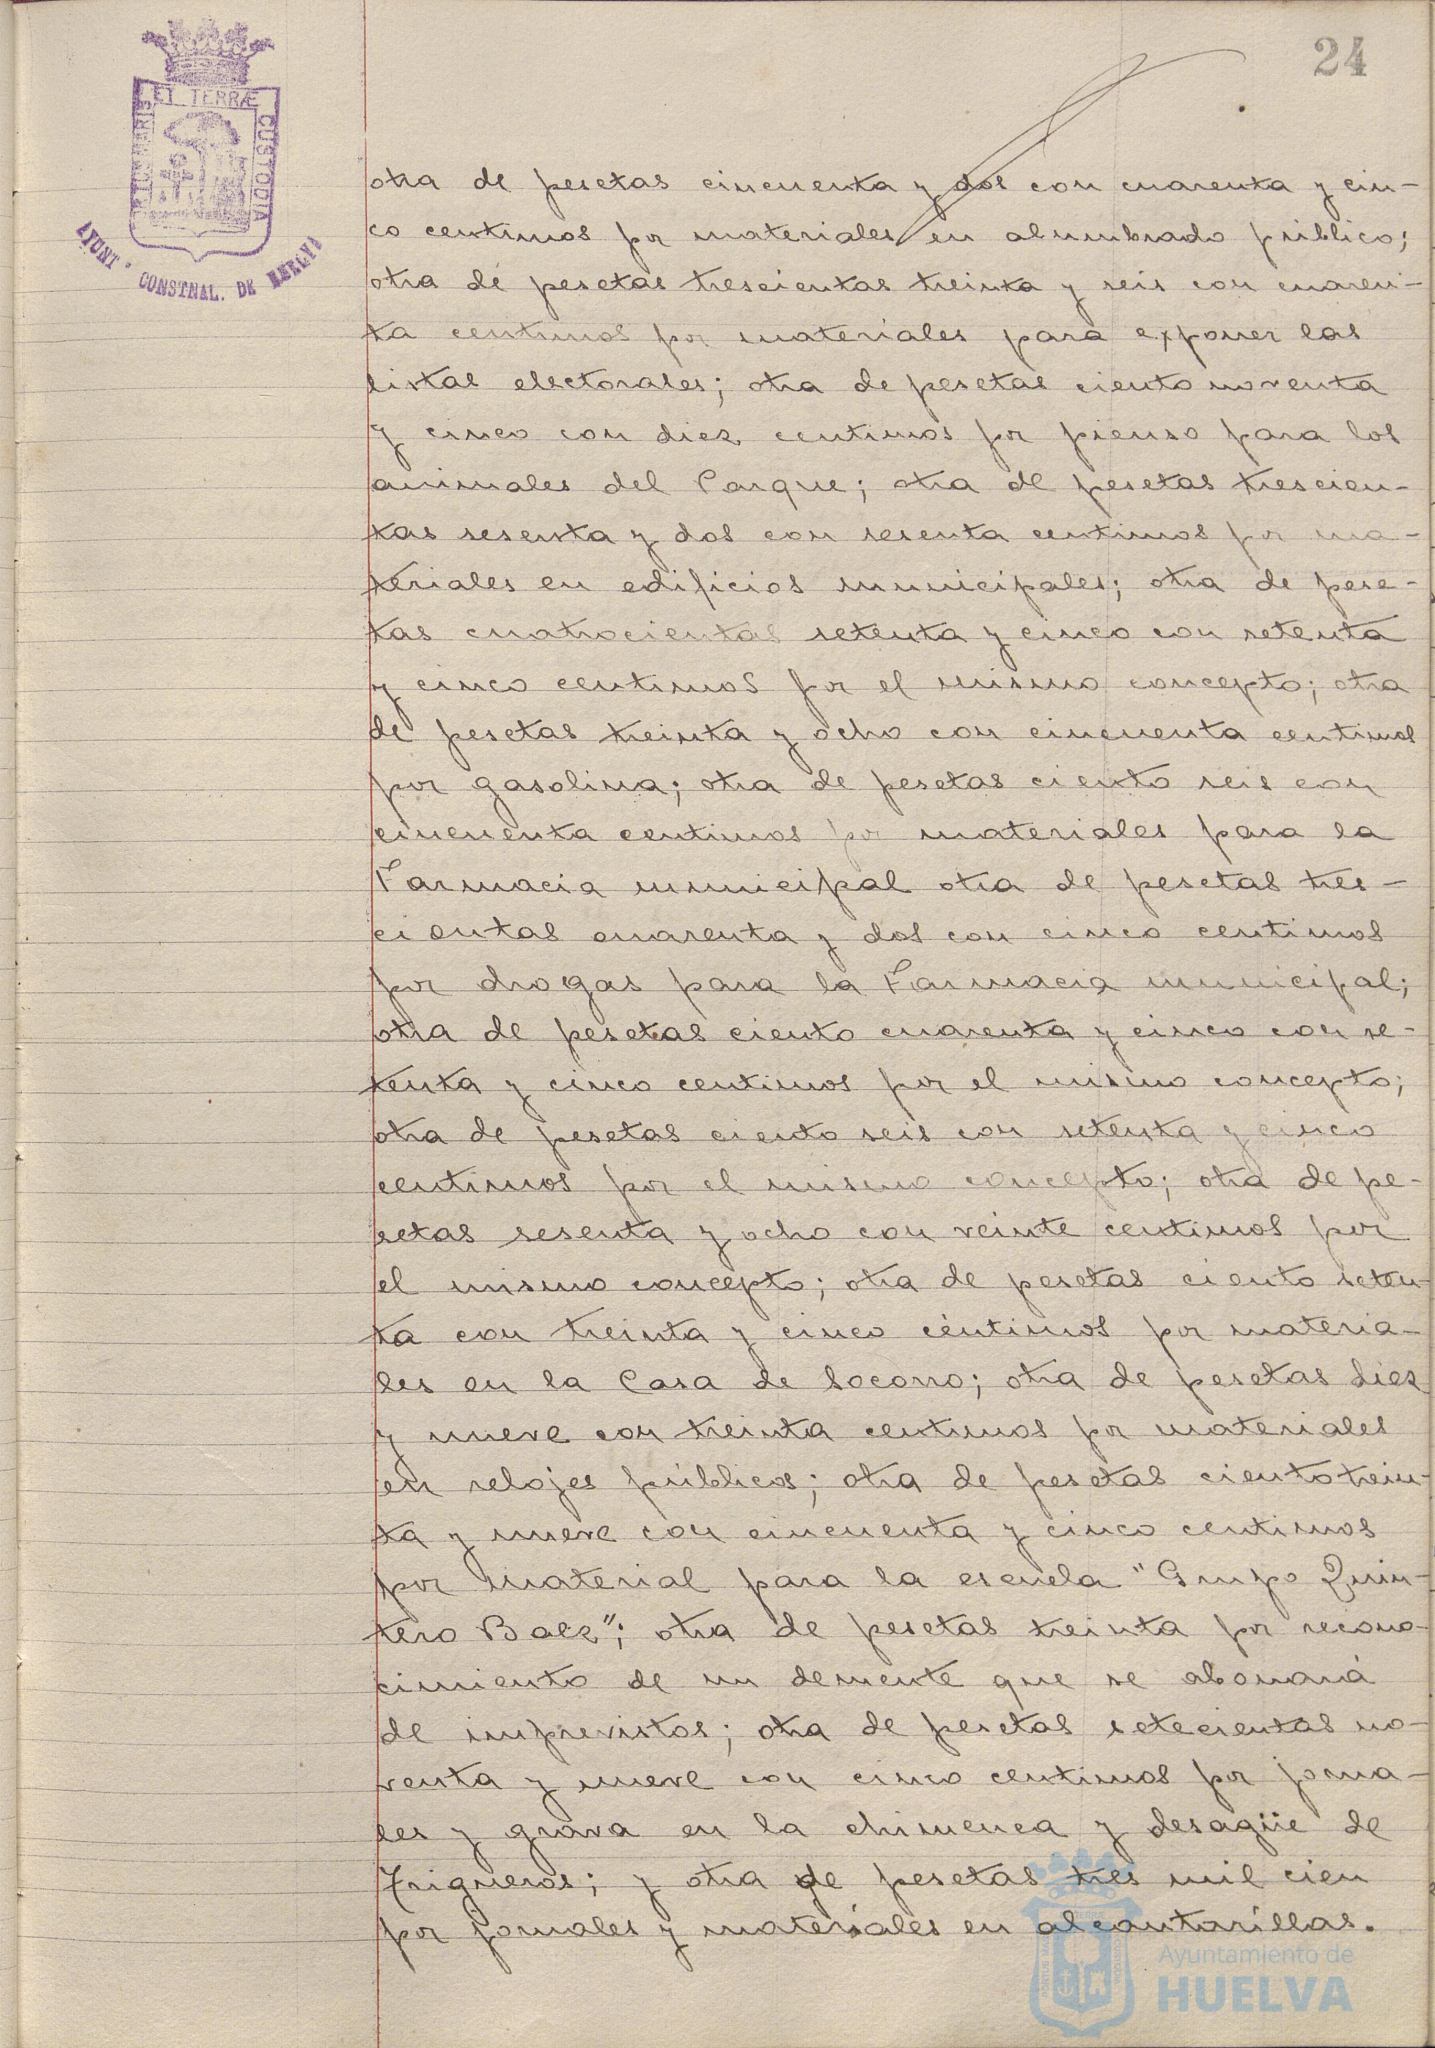 24
PORTUS MARIS ET TERRÆ CUSTODIA
AYUNT° CONSTNAL. DE HUELVA
otra de pesetas cincuenta y dos con cuarenta y cin-
co centimos por materiales en alumbrado público;
otra de pesetas trescientas treinta y seis con cuaren-
ta centimos por materiales para exponer las
listas electorales; otra de pesetas ciento noventa
y cinco con diez centimos por pienso para los
animales del Parque; otra de pesetas trescien-
tas sesenta y dos con sesenta centimos por ma-
teriales en edificios municipales; otra de pese-
tas cuatrocientas setenta y cinco con setenta
y cinco centimos por el mismo concepto; otra
de pesetas treinta y ocho con cincuenta centimos
por gasolina; otra de pesetas ciento seis con
cincuenta centimos por materiales para la
Farmacia municipal otra de pesetas tres-
cientas cuarenta y dos con cinco centimos
por drogas para la Farmacia municipal;
otra de pesetas ciento cuarenta y cinco con se-
tenta y cinco centimos por el mismo concepto;
otra de pesetas ciento seis con setenta y cinco
centimos por el mismo concepto; otra de pe-
setas sesenta y ocho con veinte centimos por
el mismo concepto; otra de pesetas ciento seten-
ta con treinta y cinco céntimos por materia-
les en la Casa de Socorro; otra de pesetas diez
y nueve con treinta centimos por materiales
en relojes públicos; otra de pesetas ciento trein-
ta y nueve con cincuenta y cinco centimos
por material para la escuela "Grupo Quin-
tero Baez"; otra de pesetas treinta por recono-
cimiento de un demente que se abonará
de imprevistos; otra de pesetas setecientas no-
venta y nueve con cinco centimos por jorna-
les y grava en la chimenea y desagüe de
Trigueros; y otra de pesetas tres mil cien
por jornales y materiales en alcantarillas.
Ayuntamiento de
HUELVA